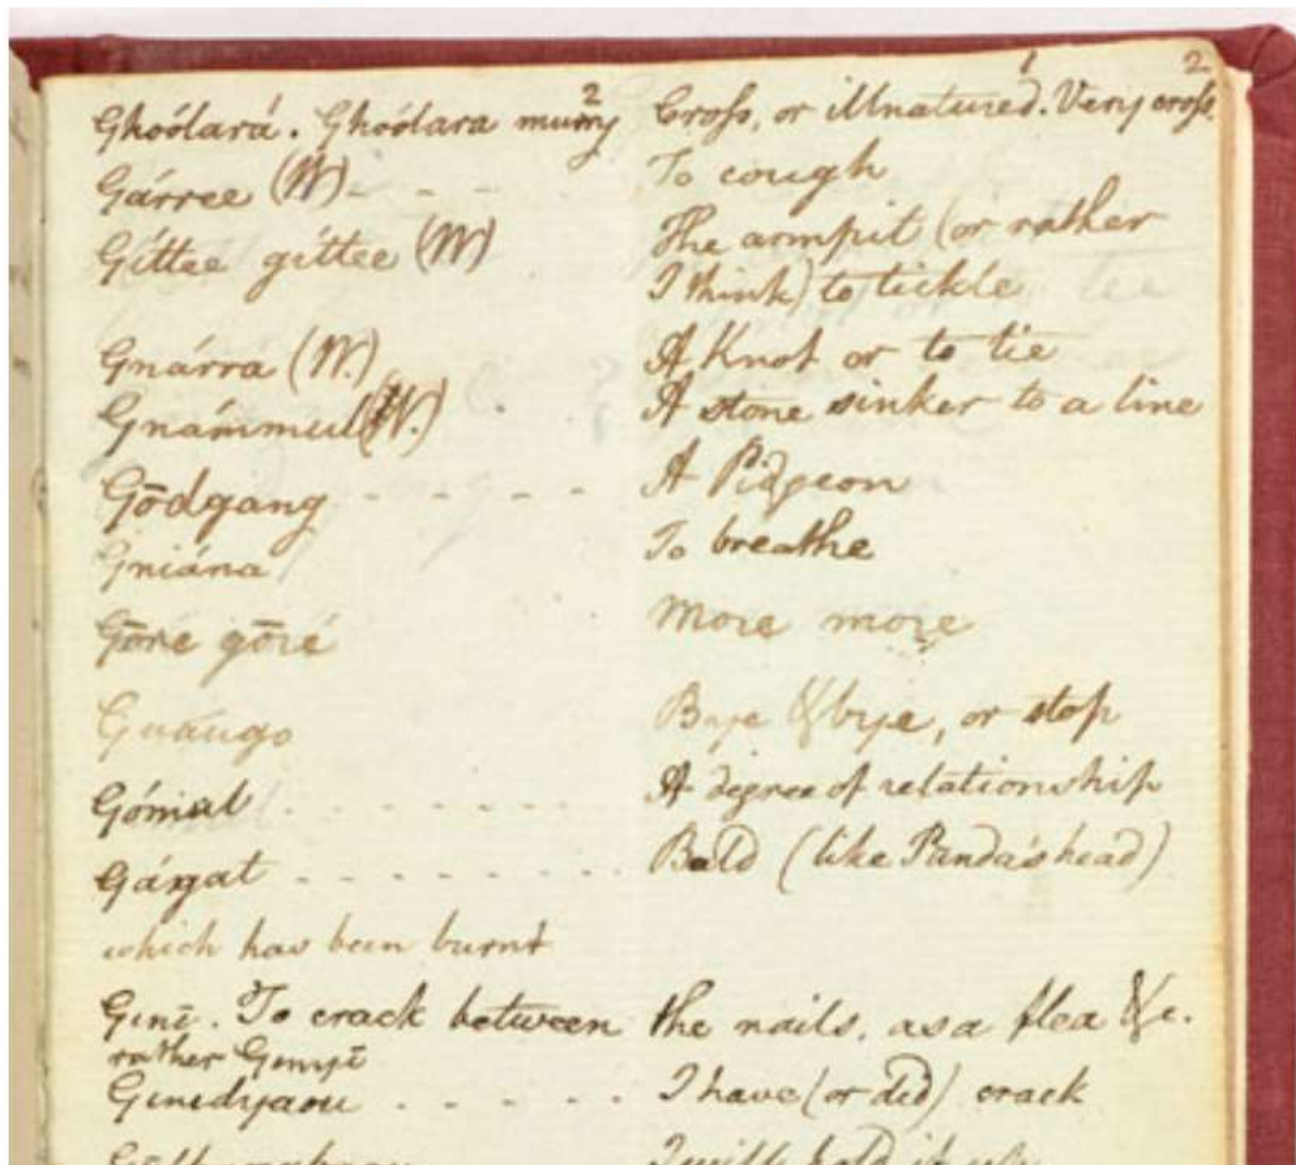 1 2
2
Ghoólará. Ghoólara murry Cross, or illnatured. Very cross
Gárree (W) - - - To cough
Gíttee gíttee (W) The armpit (or rather
I think) to tickle
Gnárra (W.) A Knot or to tie
Gnámmul (W.) A stone sinker to a line
Gōdgang - - - - - A Pidgeon
Gniána To breathe
Gōre gōré More more
Guáugo Bye & bye, or stop
A degree of relationship
Gárgat - - - - - - - - - Bald (like Panda's head)
which has been burnt
Genē. To crack between the nails, as a flea &c.
rather
Genedyaou - - - - - I have (or did) crack
I will hold it up